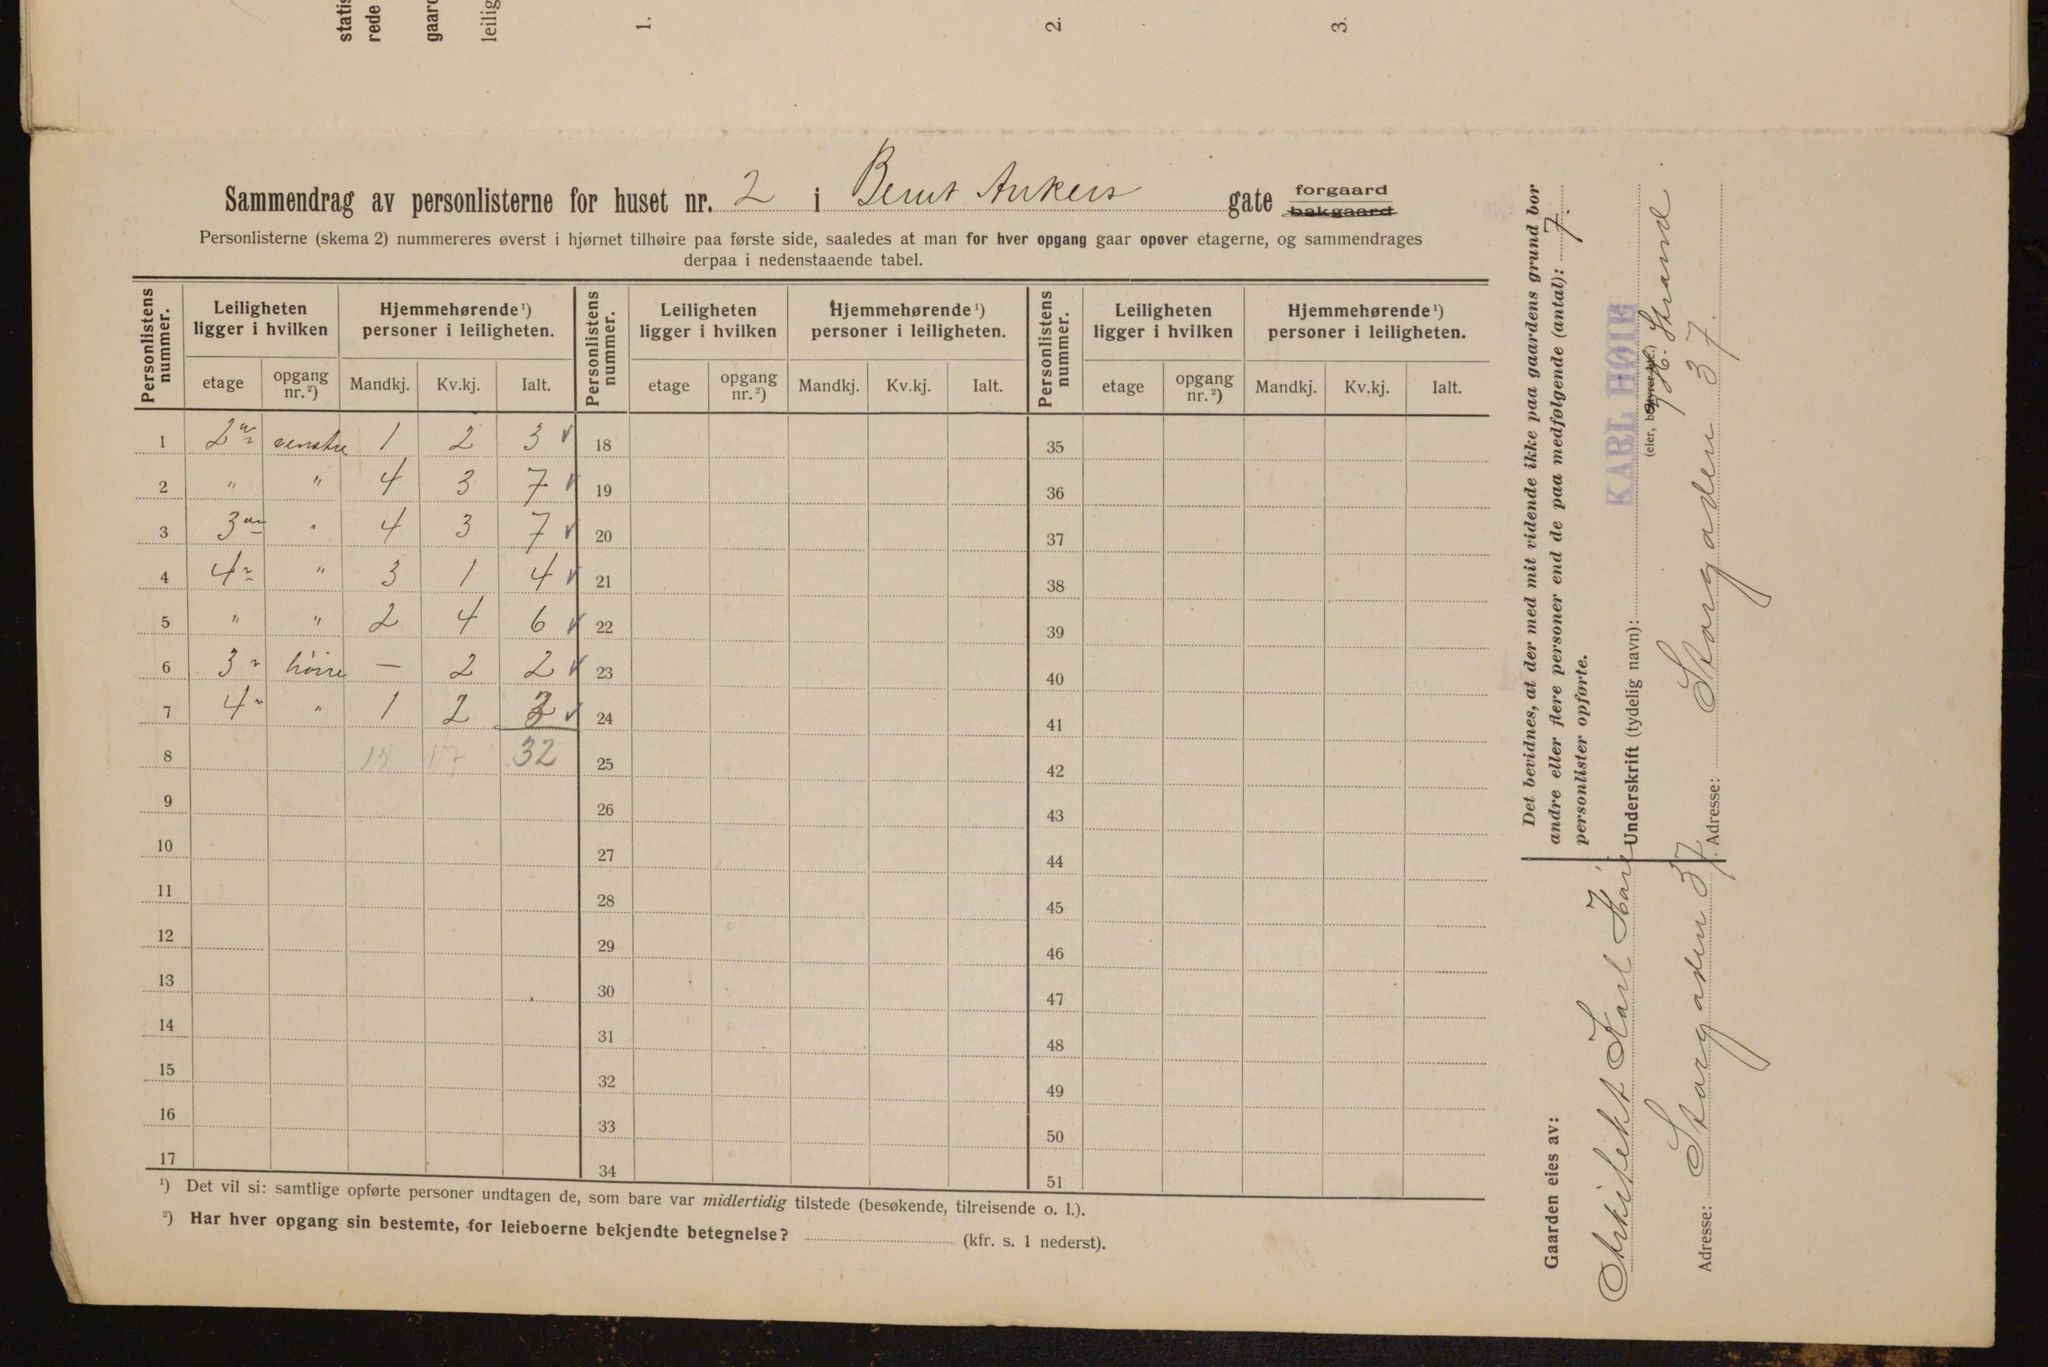 statis
rede
gaard
leilig
1.
2.
3.
Sammendrag av personlisterne for huset nr. 2 i Bernt Ankers gate forgaard bakgaard
Personlisterne (skema 2) nummereres øverst i hjørnet tilhøire paa første side, saaledes at man for hver opgang gaar opover etagerne, og sammendrages
derpaa i nedenstaaende tabel.
Personlistens nummer. Leiligheten ligger i hvilken Hjemmehørende ¹) personer i leiligheten. Personlistens nummer. Leiligheten ligger i hvilken Hjemmehørende ¹) personer i leiligheten. Personlistens nummer. Leiligheten ligger i hvilken Hjemmehørende ¹) personer i leiligheten.
etage opgang nr. ²) Mandkj. Kv.kj. Ialt. etage opgang nr. ²) Mandkj. Kv.kj. Ialt. etage opgang nr. ²) Mandkj. Kv.kj. Ialt.
1 2 venstre 1 2 3 ✓ 18 35
2 " " 4 3 7 ✓ 19 36
3 3 " 4 3 7 ✓ 20 37
4 4 " 3 1 4 ✓ 21 38
5 " " 2 4 6 ✓ 22 39
6 3 høire — 2 2 ✓ 23 40
7 4 " 1 2 3 ✓ 24 41
8 15 17 32 25 42
9 26 43
10 27 44
11 28 45
12 29 46
13 30 47
14 31 48
15 32 49
16 33 50
17 34 51
¹) Det vil si: samtlige opførte personer undtagen de, som bare var midlertidig tilstede (besøkende, tilreisende o. l.).
²) Har hver opgang sin bestemte, for leieboerne bekjendte betegnelse? (kfr. s. 1 nederst).
Det bevidnes, at der med mit vidende ikke paa gaardens grund bor
andre eller flere personer end de paa medfølgende (antal): 7.
personlister opførte.
KARL HØIE
Underskrift (tydelig navn):
(eier, bestyrer
Strand
Adresse: Storgaden 37.
Gaarden eies av:
Arkitekt Karl Høie
Adresse: Storgaden 37.